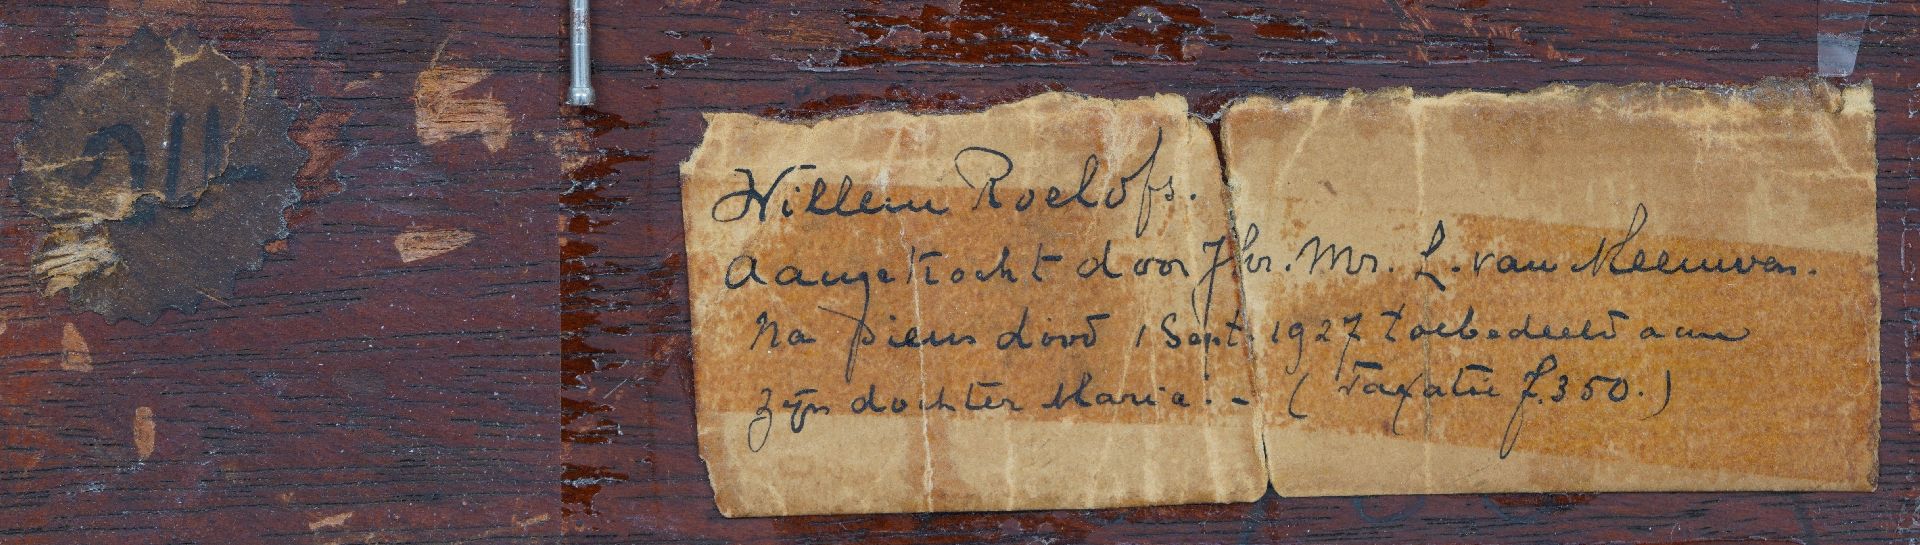 Willem Roelofs.
Aangekocht door Jhr. Mr. L. van Meeuwen.
Na diens dood 1 Sept. 1927 toebedeeld aan
zijn dochter Maria:- ( taxatie f.350.)